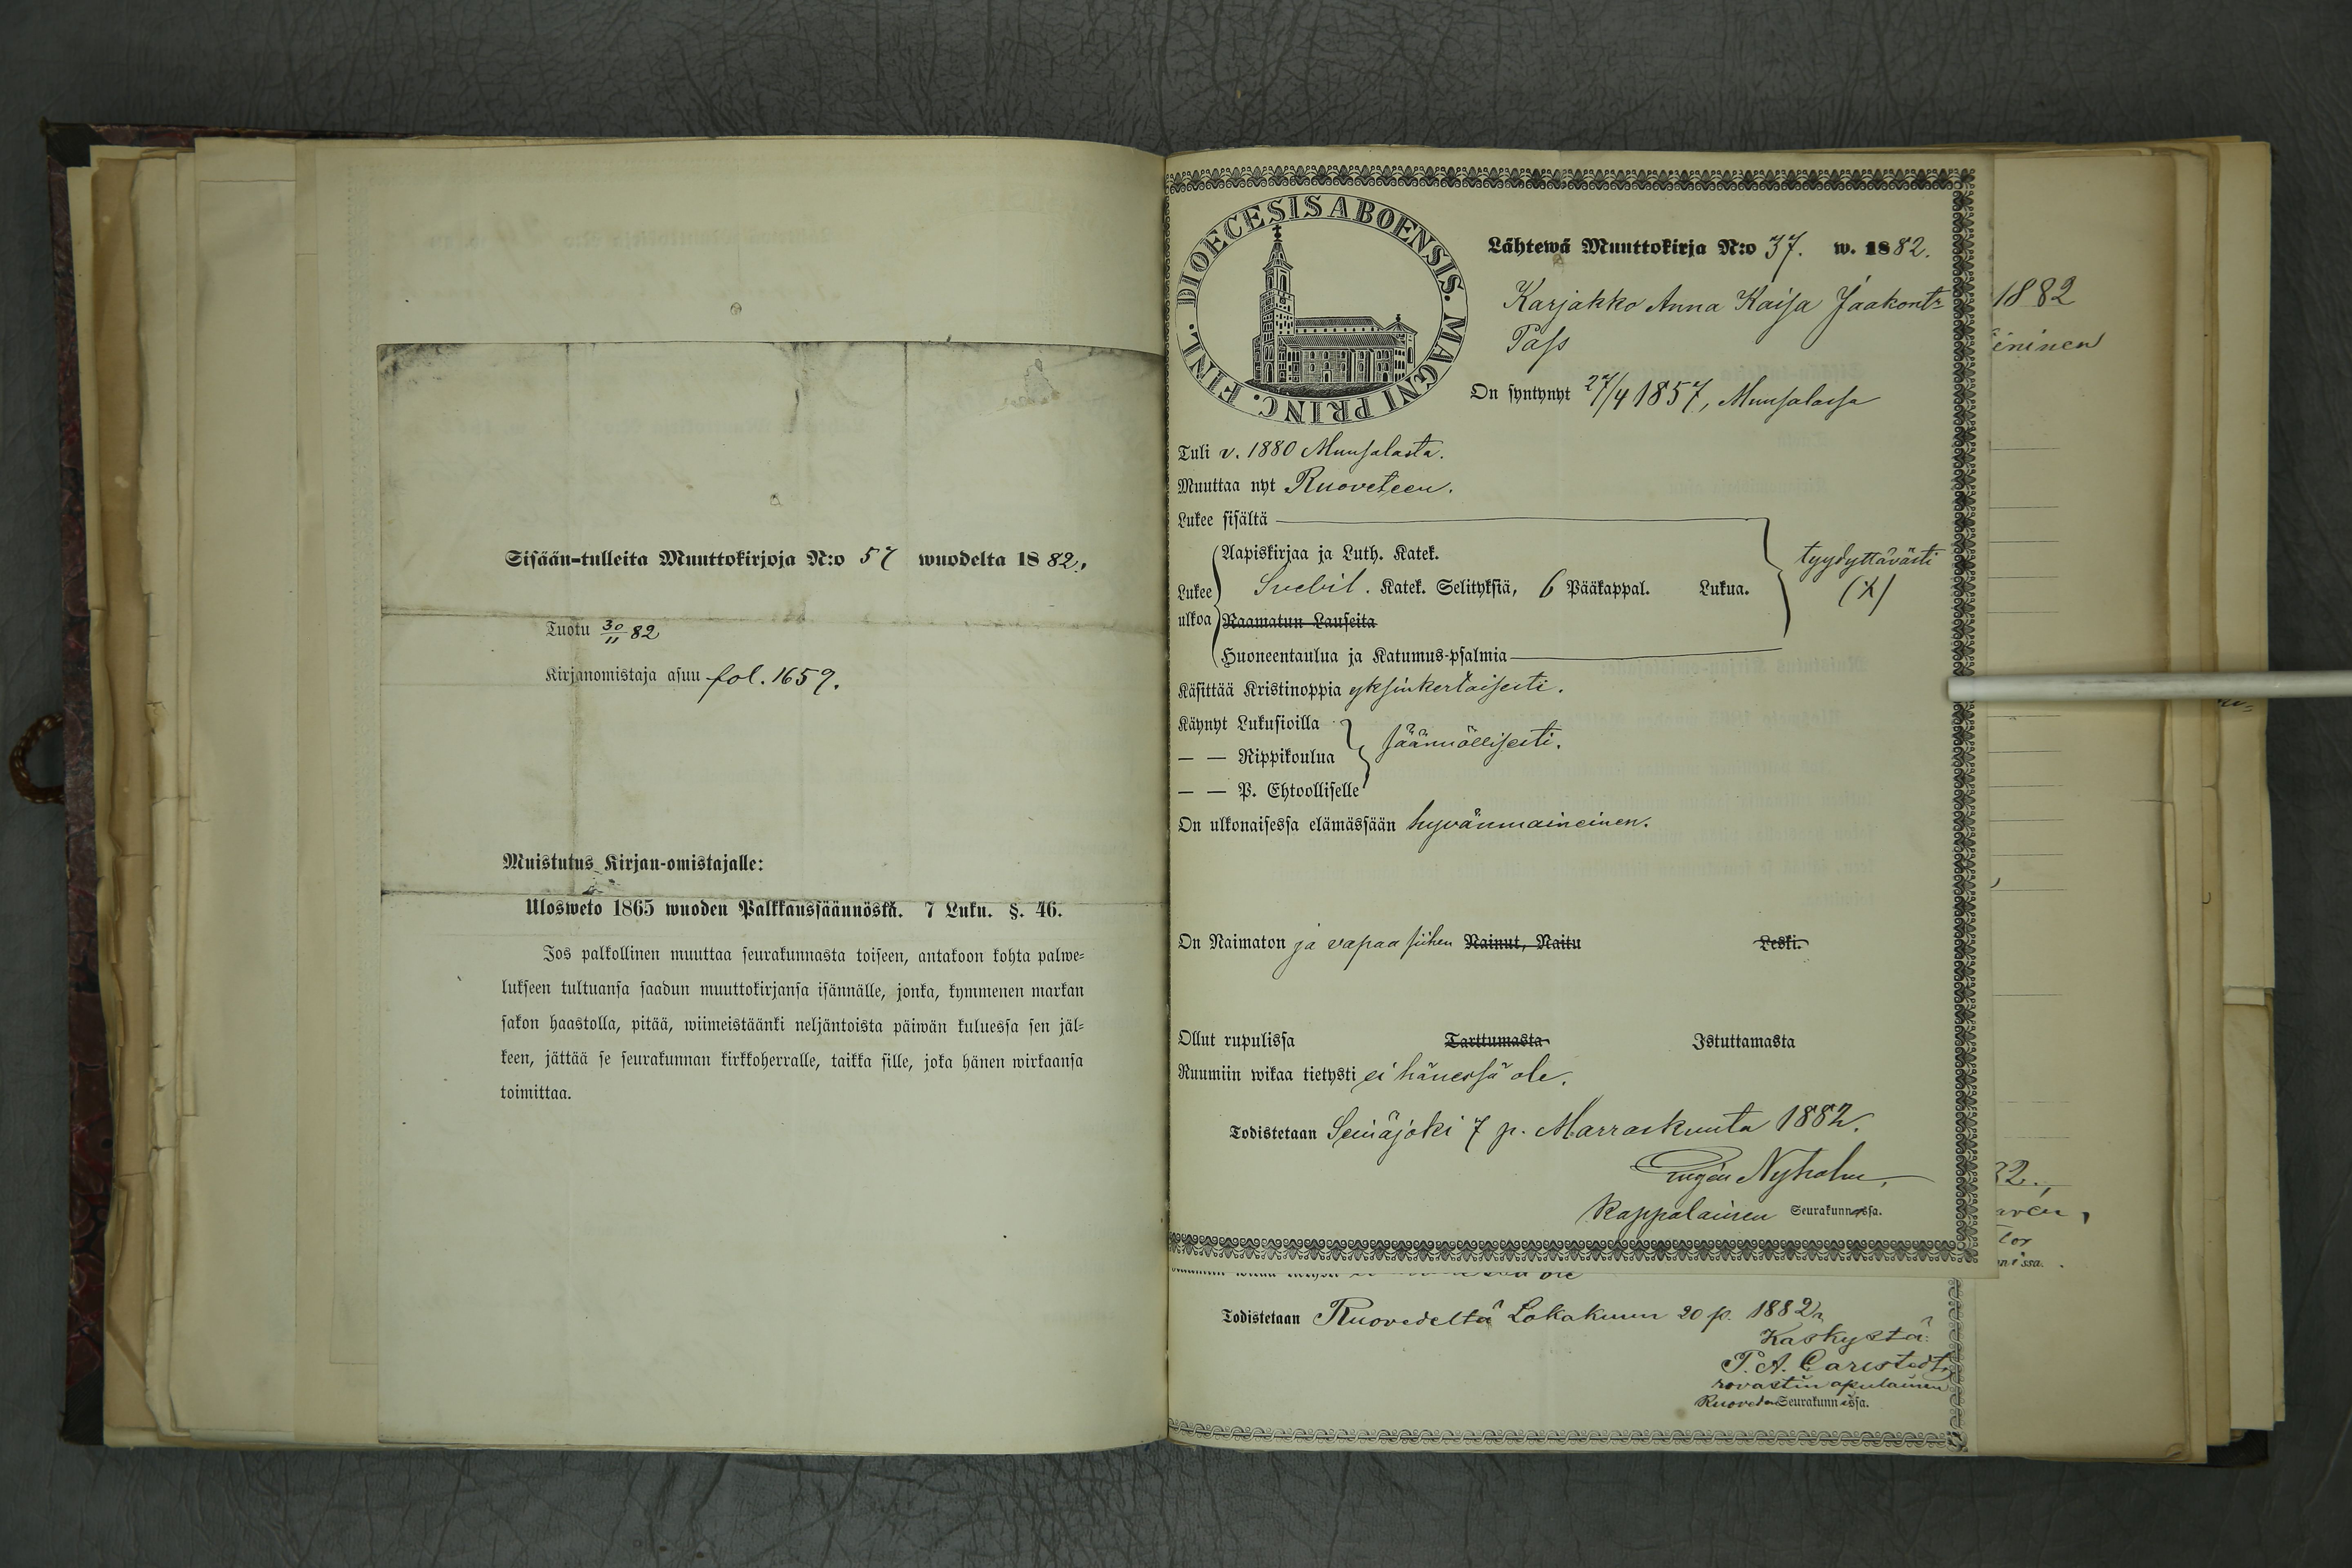 Sisään-tulleita Muuttokirjoja N:o 57 wuodelta 1882.
Tuotu 30/11 82
Kirjanomistaja asuu fol. 1659.
Muistutus Kirjan-omistajalle:
Ulosweto 1865 wuoden Palkkaussäännöstä. 7 Luku. §. 46.
Jos palkollinen muuttaa seurakunnasta toiseen, antakoon kohta palwe-
lukseen tultuansa saadun muuttokirjansa isännälle, jonka, kymmenen markan
sakon haastolla, pitää, wiimeistäänki neljäntoista päiwän kuluessa sen jäl-
keen, jättää se seurakunnan kirkkoherralle, taikka sille, joka hänen wirkaansa
toimittaa.
DIOECESIS ABOENSIS. MAGNI PRINC. FINL.
Lähtewä Muuttokirja N:o 37. w. 1882.
Karjakko Anna Kaisa Jaakontr
Pass
On syntynyt 27/4 1857, Munsalassa
Tuli v. 1880 Munsalasta.
Muuttaa nyt Ruoveteen.
Lukee sisältä
Lukee ulkoa
Aapiskirjaa ja Luth. Katek.
Svebil. Katek. Selityksiä, 6 Pääkappal. Lukua.
Raamatun Lauseita
Huoneentaulua ja Katumus-psalmia
tyydyttävästi
(X)
Käsittää Kristinoppia yksinkertaisesti.
Käynyt Lukusioilla
— — Rippikoulua
— — P. Ehtoolliselle
säännöllisesti.
On ulkonaisessa elämässään hyvänmaineinen.
On Naimaton ja vapaa siihen Nainut, Naitu Leski.
Ollut rupulissa Tarttumasta Istuttamasta
Ruumiin wikaa tietysti ei hänessä ole.
Todistetaan Seinäjoki 7 p. Marraskuuta 1882.
Nyholm,
Kappalainen Seurakunnassa.
Todistetaan Ruovedeltä Lokakuun 20 p. 1882,
Käskystä:
P. A. Carlstedt,
rovastin apulainen
Ruoveden Seurakunnissa.
1882